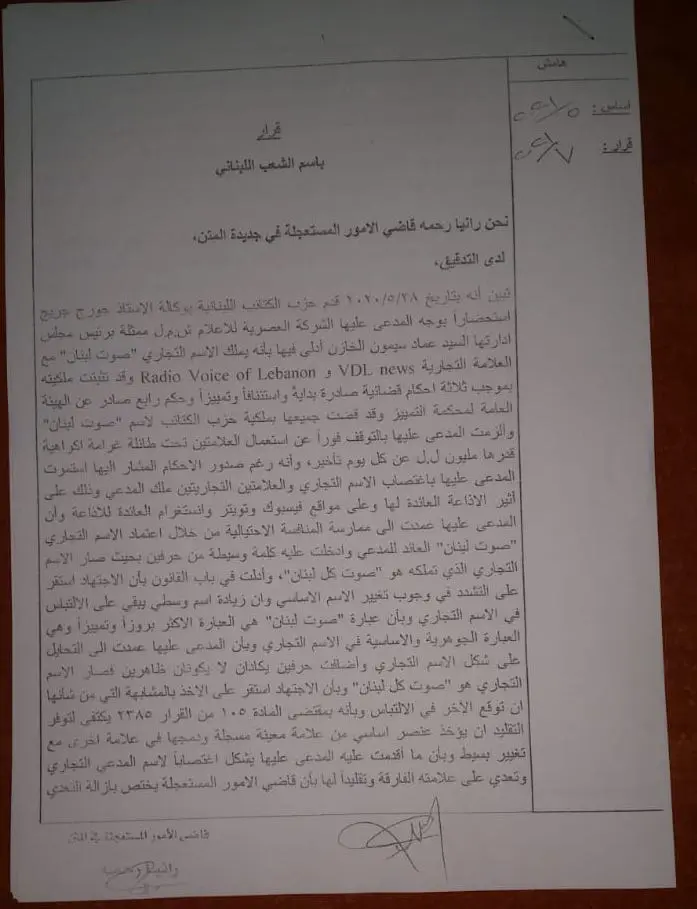 هامش
اساس :
قرار :
قرار
باسم الشعب اللبناني
نحن رانيا رحمه قاضي الامور المستعجلة في جديدة المتن،
لدى التدقيق،
تبين أنه بتاريخ ٢٠٢٠/٥/٢٨ قدم حزب الكتائب اللبنانية بوكالة الاستاذ جورج جريج
استحضاراً بوجه المدعى عليها الشركة العصرية للاعلام ش.م.ل ممثلة برئيس مجلس
ادارتها السيد عماد سيمون الخازن أدلى فيها بأنه يملك الاسم التجاري "صوت لبنان" مع
العلامة التجارية VDL news و Radio Voice of Lebanon وقد تثبتت ملكيته
بموجب ثلاثة احكام قضائية صادرة بدايةً واستئنافاً وتمييزاً وحكم رابع صادر عن الهيئة
العامة لمحكمة التمييز وقد قضت جميعها بملكية حزب الكتائب لاسم "صوت لبنان"
وألزمت المدعى عليها بالتوقف فوراً عن استعمال العلامتين تحت طائلة غرامة اكراهية
قدرها مليون ل.ل عن كل يوم تأخير، وأنه رغم صدور الاحكام المشار اليها استمرت
المدعى عليها باغتصاب الاسم التجاري والعلامتين التجاريتين ملك المدعي وذلك على
أثير الاذاعة العائدة لها وعلى مواقع فيسبوك وتويتر وانستغرام العائدة للاذاعة وأن
المدعى عليها عمدت الى ممارسة المنافسة الاحتيالية من خلال اعتماد الاسم التجاري
"صوت لبنان" العائد للمدعي وادخلت عليه كلمة وسيطة من حرفين بحيث صار الاسم
التجاري الذي تملكه هو "صوت كل لبنان"، وأدلت في باب القانون بأن الاجتهاد استقر
على التشدد في وجوب تغيير الاسم الاساسي وان زيادة اسم وسطي يبقي على الالتباس
في الاسم التجاري وبأن عبارة "صوت لبنان" هي العبارة الاكثر بروزاً وتمييزاً وهي
العبارة الجوهرية والاساسية في الاسم التجاري وبأن المدعى عليها عمدت الى التحايل
على شكل الاسم التجاري وأضافت حرفين يكادان لا يكونان ظاهرين فصار الاسم
التجاري هو "صوت كل لبنان" وبأن الاجتهاد استقر على الاخذ بالمشابهة التي من شانها
ان توقع الآخر في الالتباس وبأنه بمقتضى المادة ١٠٥ من القرار ٢٣٨٥ يكتفى لتوفر
التقليد ان يؤخذ عنصر اساسي من علامة معينة مسجلة ودمجها في علامة اخرى مع
تغيير بسيط وبأن ما أقدمت عليه المدعى عليها يشكل اغتصاباً لاسم المدعي التجاري
وتعدي على علامته الفارقة وتقليداً لها بأن قاضي الامور المستعجلة يختص بازالة التعدي
قاضي الأمور المستعجلة في المتن
رانيا رحمه